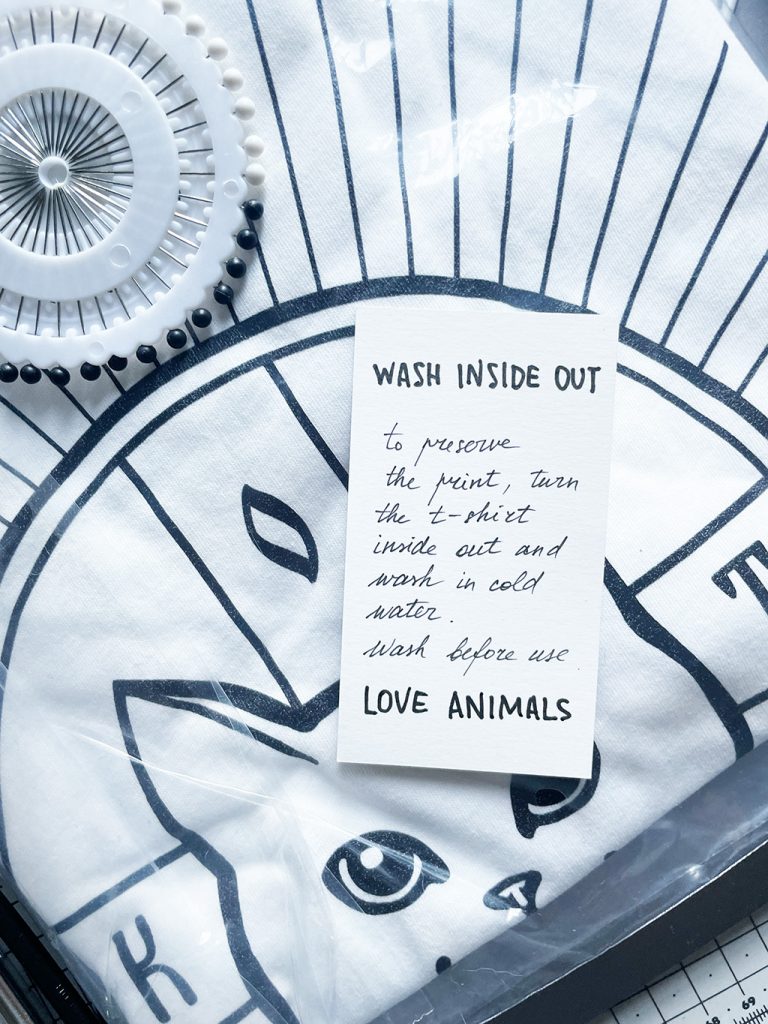 WASH INSIDE OUT
to preserve
the print, turn
the t-shirt
inside out and
wash in cold
water.
wash before use
LOVE ANIMALS
T
K
68 69